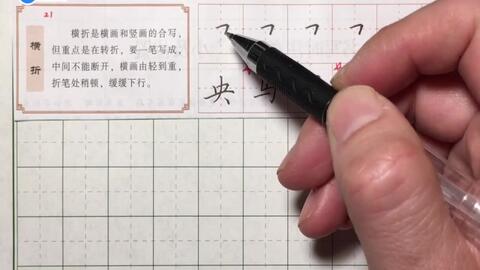 21
横折
横折是横画和竖画的合写,
但重点是在转折,要一笔写成,
中间不能断开,横画由轻到重,
折笔处稍顿,缓缓下行。
央